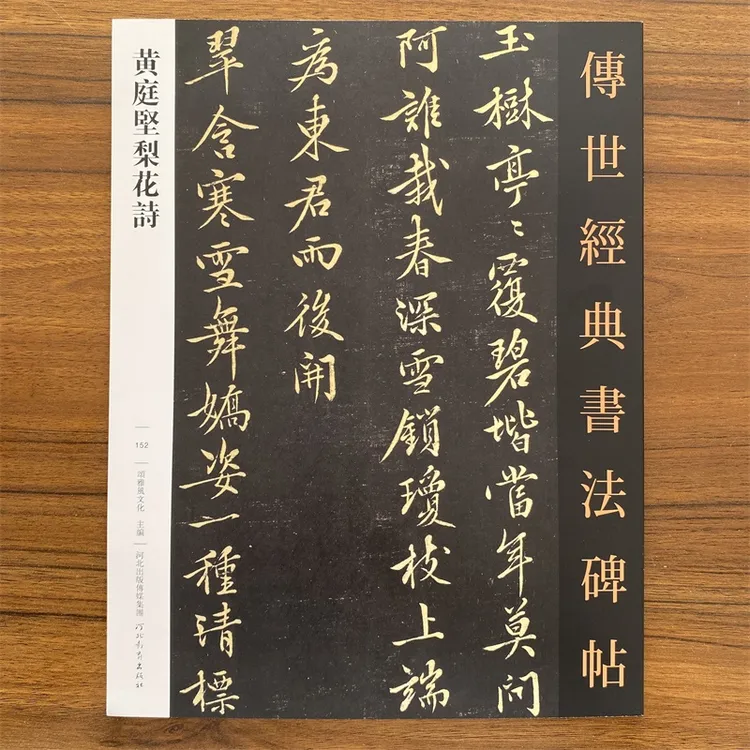 傳世經典書法碑帖
玉樹亭〻覆碧堦當年莫問
阿誰栽春深雪鎖瓊枝上端
為東君而後開
翠含寒雪舞嬌姿一種清標
黄庭堅梨花詩
152
頌雅風文化 主編
河北出版傳媒集團 河北教育出版社